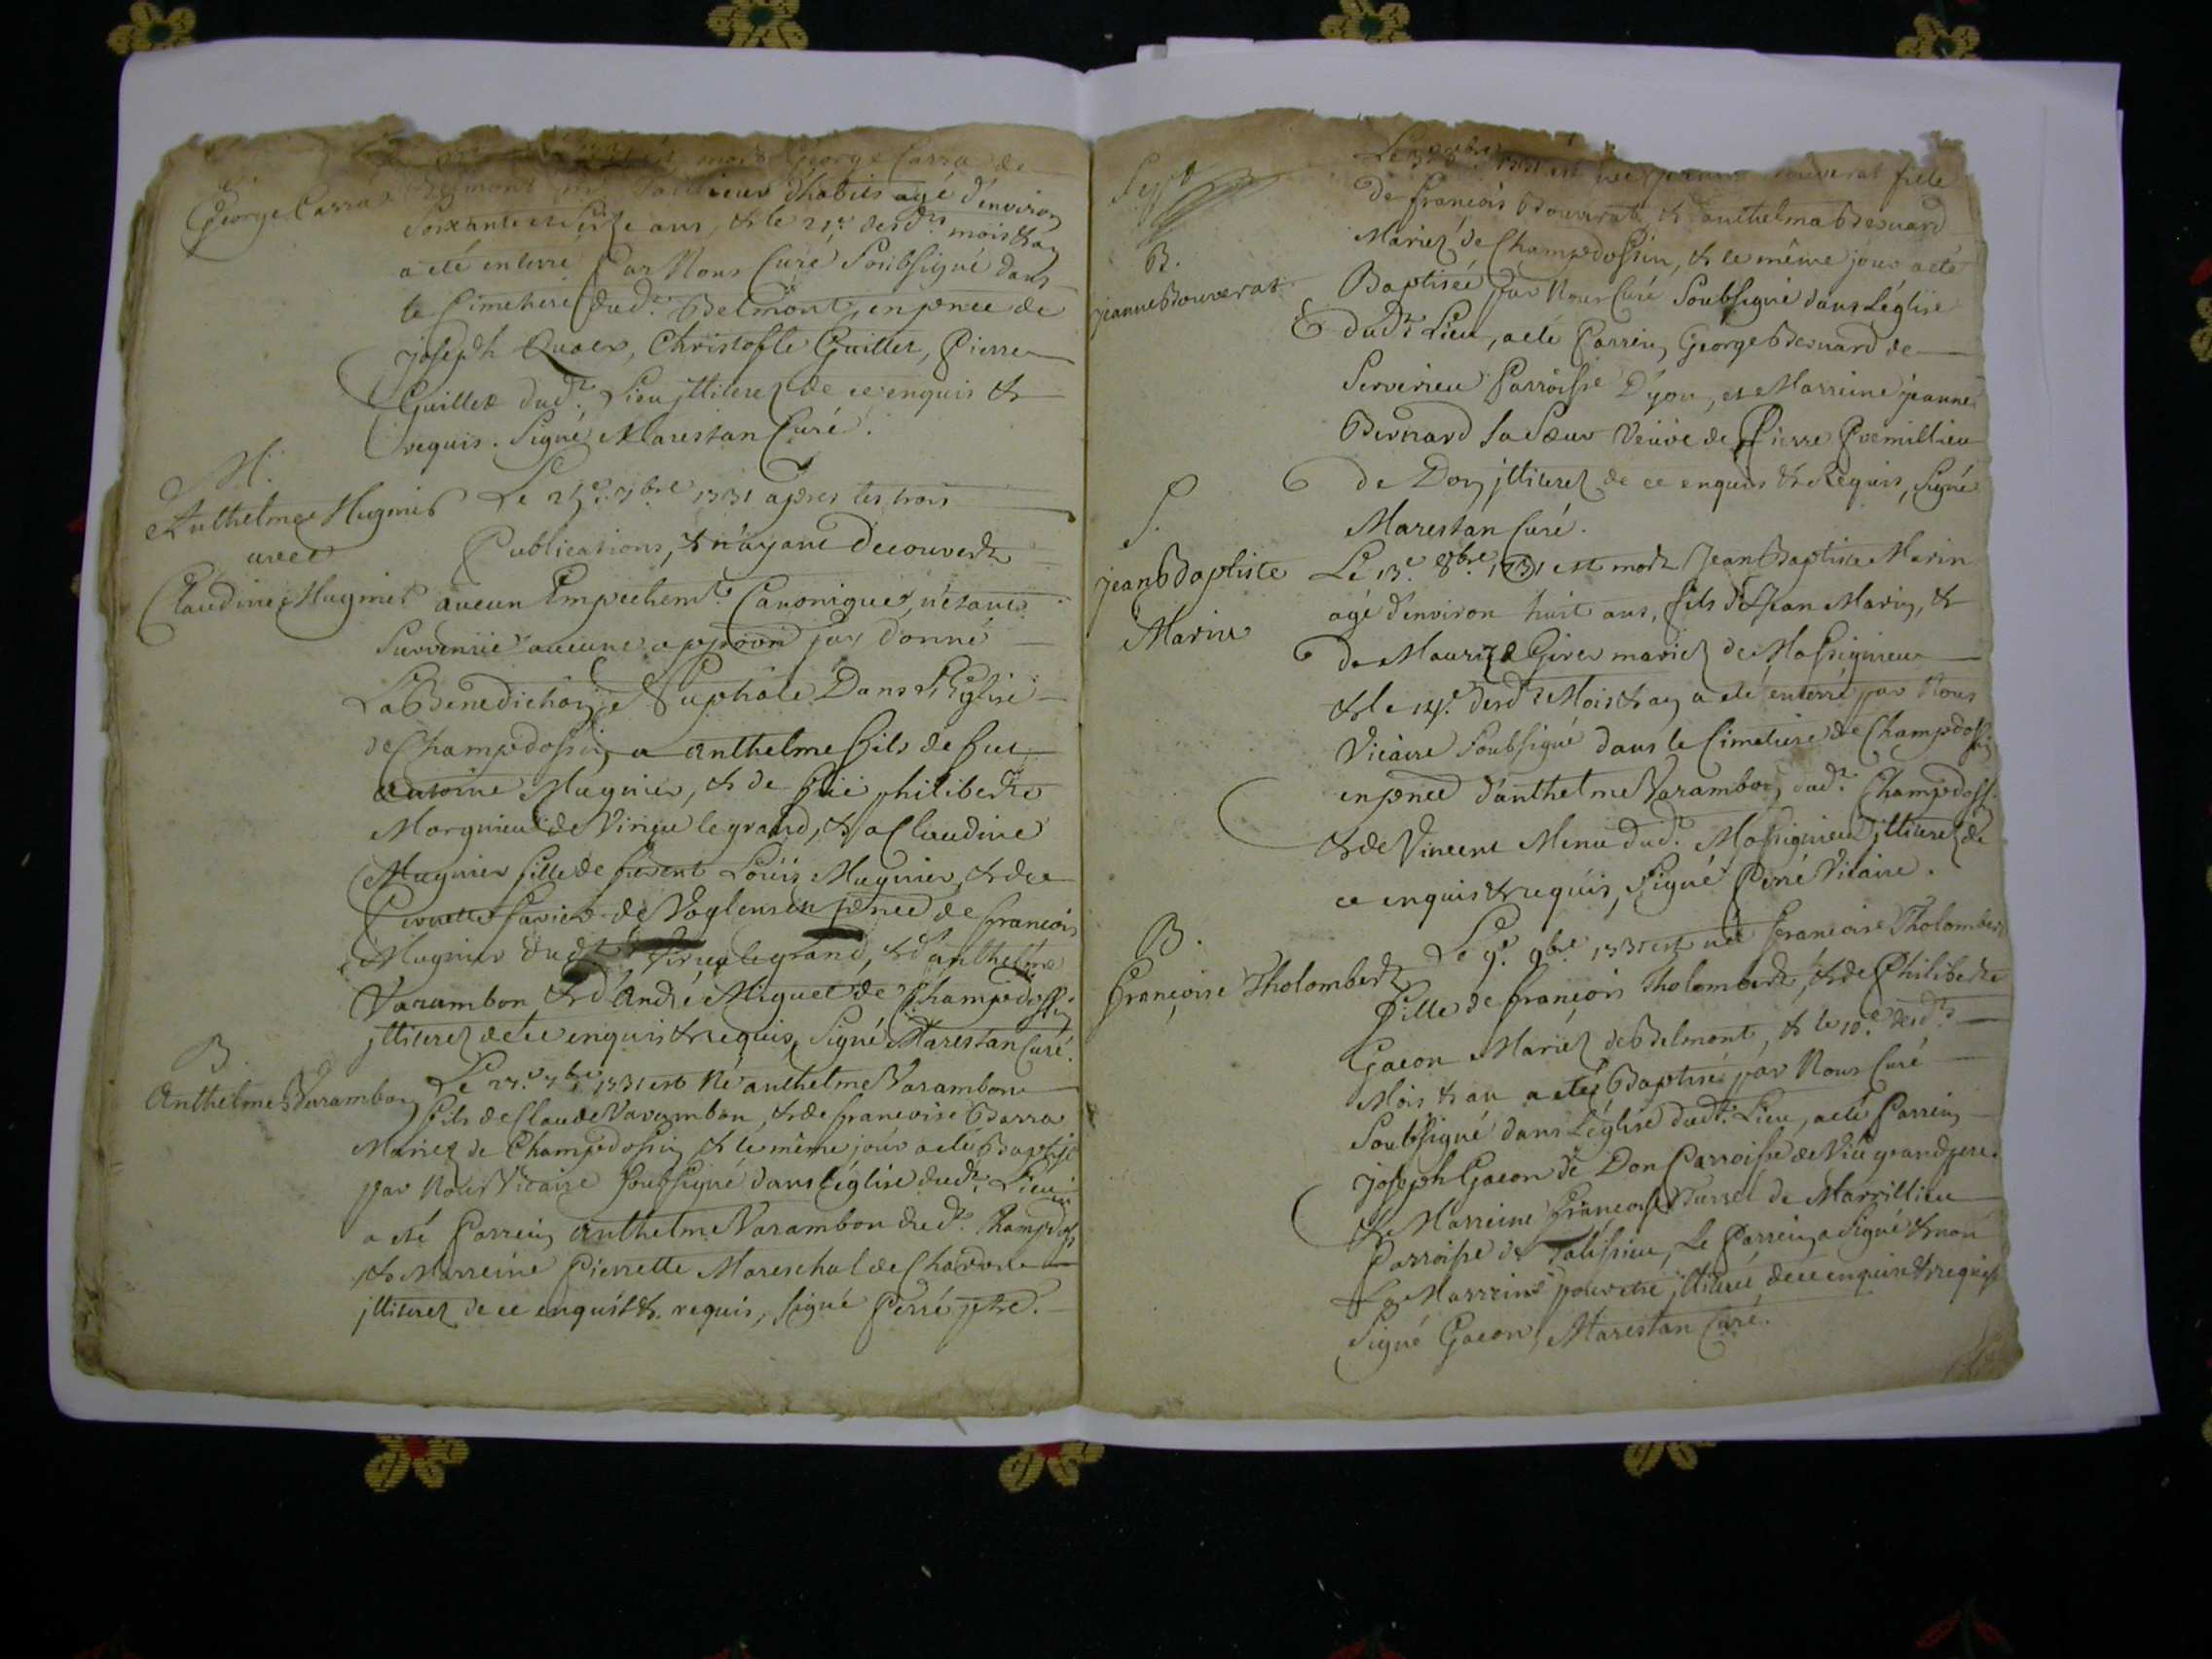 mort George Carra de
George Carra Belmont tailleur d'habits agé d'environ
Soixante et seize ans, & le 21e. desdts. mois & an
a eté enterré par Nous Curé Soubsigné dans
le Cimetiere dudt. Belmont, en pnce de
joseph Quaex, Christofle Guillet, Pierre
Guillet dudt. Lieu jlliterez de ce enquis &
requis. Signé Marestan Curé.
M.
Anthelme Mugnier
avec
Claudine Mugnier
Le 25e. 7bre 1731 apres les trois
Publications, & n'ayant decouvert
aucun Empechemt. Canonique, n'étant
Survenüe aucune apposon jay donné
La Benediction Nuptiale Dans L'Eglise
de Champdossin a anthelme fils de feu
antoine Mugnier, & de feüe philiberte
Morgnieu de Virieu le grand, & a Claudine
Mugnier fille de Loüis Mugnier, & de
Pernette Savier de Voglens en pnce de francois
Mugnier dudt. Virieu le grand, & d'anthelme
Varambon & d'André Miguet de Champdossin
jlliterez de ce enquis & requis, Signé Marestan Curé.
B.
Anthelme Varambon
Le 27e. 7bre 1731 est Né anthelme Varambon
fils de Claude Varambon, & de francoise Barra
Mariez de Champdossin & le même jour a eté Baptisé
par Nous Vicaire Soubsigné dans L'église dudt. Lieu
a eté Parrein anthelme Varambon dudt. Champdoss.
& Marreine Pierrette Mareschal de Chavorn
jlliterez de ce enquis & requis, signé Perré ptre.
Sept
B.
jeanne Bouverat
1731 est née jeanne Bouverat fille
de francois Bouverat, & d'anthelma Bernard
Mariez de Champdossin, & le même jour a eté
Baptisée par Nous Curé Soubsigné dans L'église
dudt. Lieu, a eté Parrein George Bernard de
Serverieu Parroisse D'yon, et Marreine jeanne
Bernard sa Sœur Veuve de Pierre Premillieu
de Don jlliterez de ce enquis & Requis, Signé
Marestan Curé.
S.
jean Baptiste
Marin
Le 13e. 8bre 1731 est mort Jean Baptiste Marin
agé d'environ huit ans, fils de Jean Marin, &
de Maurize Girer mariez de Massignieu
& le 14e. desdts. Mois & an a eté enterré par Nous
Vicaire Soubsigné dans le Cimetiere de Champdossin
en pnce d'anthelme Varambon dudt. Champdoss.
& de Vincent Menu dudt. Massignieu jlliterez de
ce enquis & requis, Signé Perré Vicaire.
B.
Françoise Tholombert
Le 9e. 9bre 1731 est née francoise Tholombert
fille de françois Tholombert, & de Philiberte
Gacon Mariez de Belmont, & le 10e. desdts.
Mois & an a eté Baptisé par Nous Curé
Soubsigné dans L'église dudt. Lieu, a eté Parrein
joseph Gacon de Don Parroisse de Vieu grandpere.
& Marreine francoise Burrel de Marrillieu
Parroisse de Talissieu, Le Parrein a Signé & non
La Marreine pour etre jlliterée de ce enquise & requise
Signé Gacon, Marestan Curé.